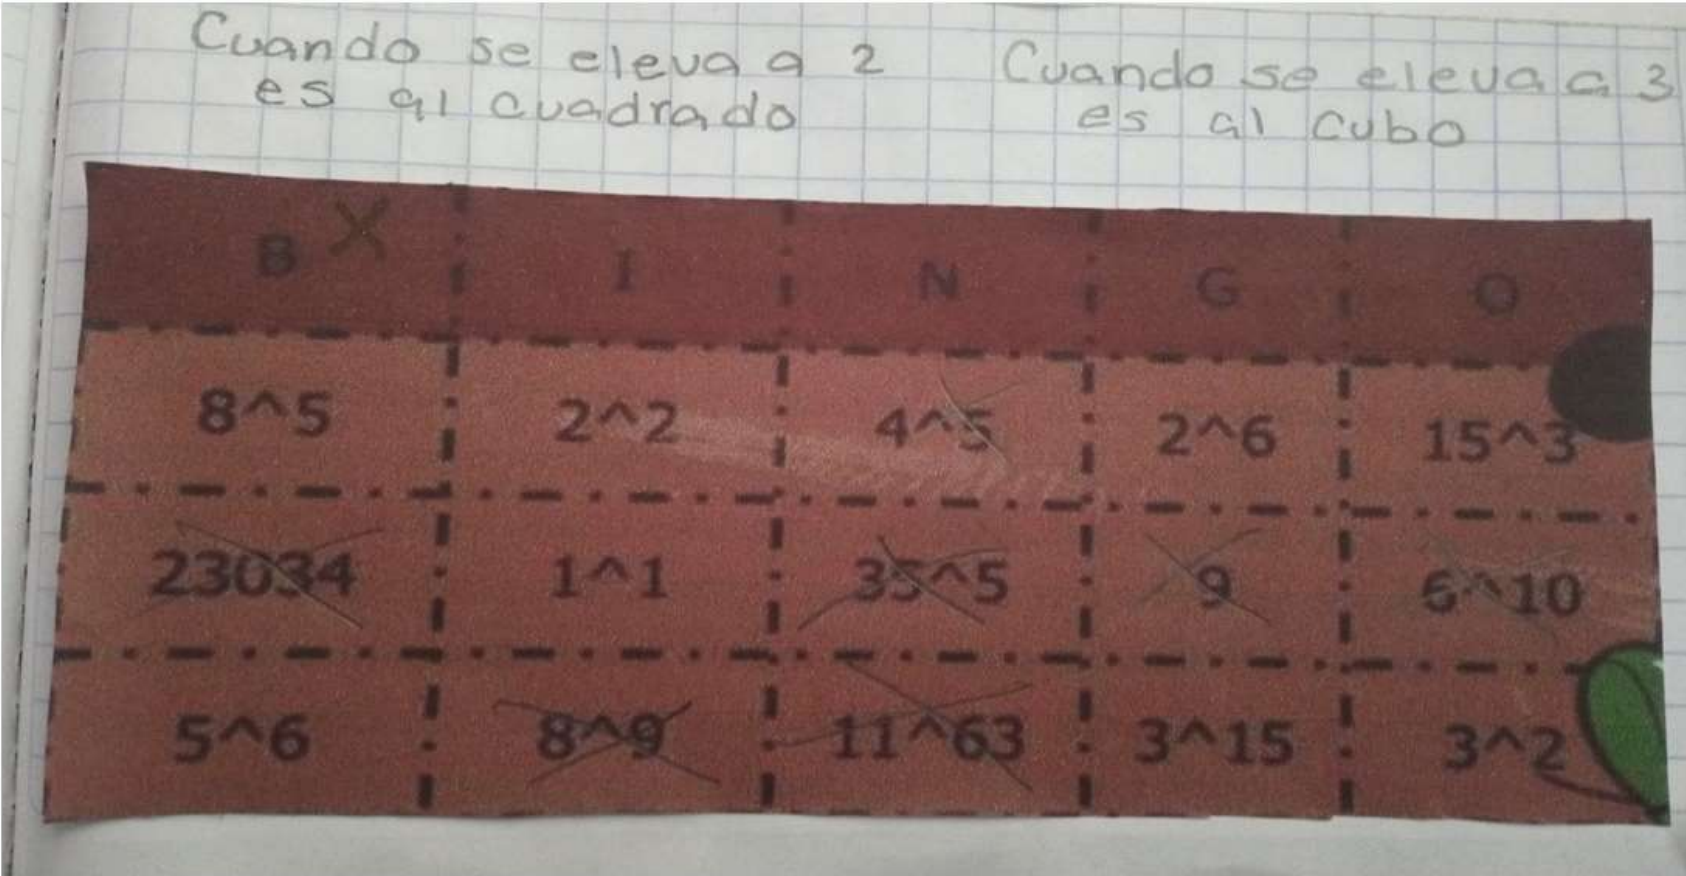 Cuando se eleva a 2
es al cuadrado
Cuando se eleva a 3
es al cubo
B X I N G O
8^5 2^2 4^5 2^6 15^3
23034 1^1 35^5 9 6^10
5^6 8^9 11^63 3^15 3^2